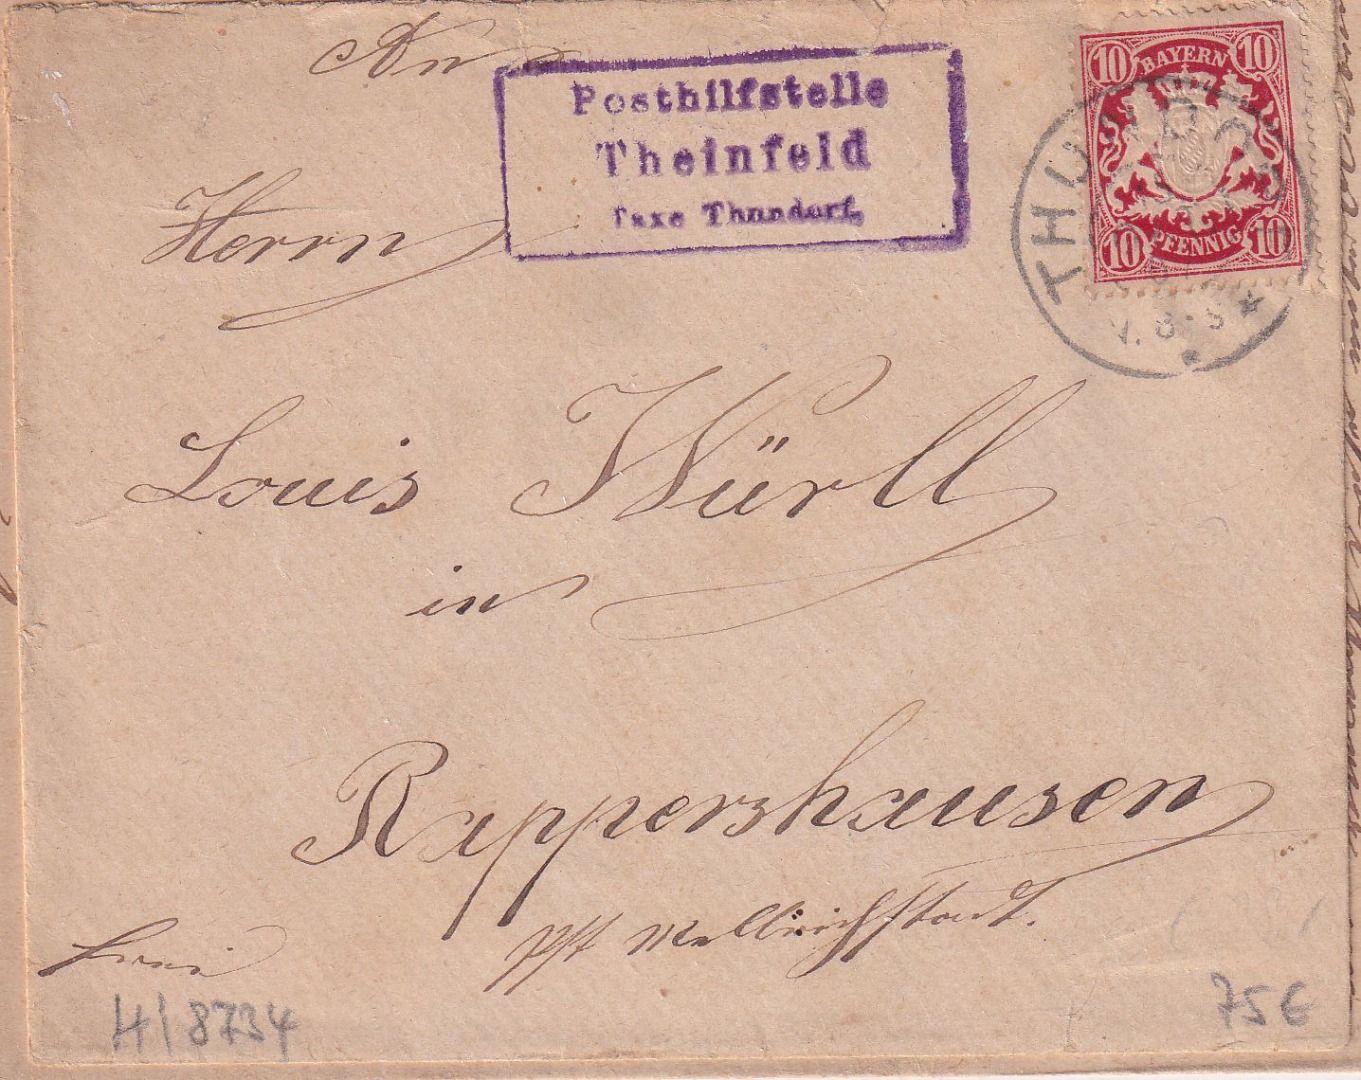 An
Posthilfstelle
Theinfeld
Taxe Thundorf.
10 BAYERN 10
10 PFENNIG 10
THU
V. 8-9 *
Herrn
Louis Würll
in
Rappershausen
Pst Mellrichstadt.
frei
H/8734
75€